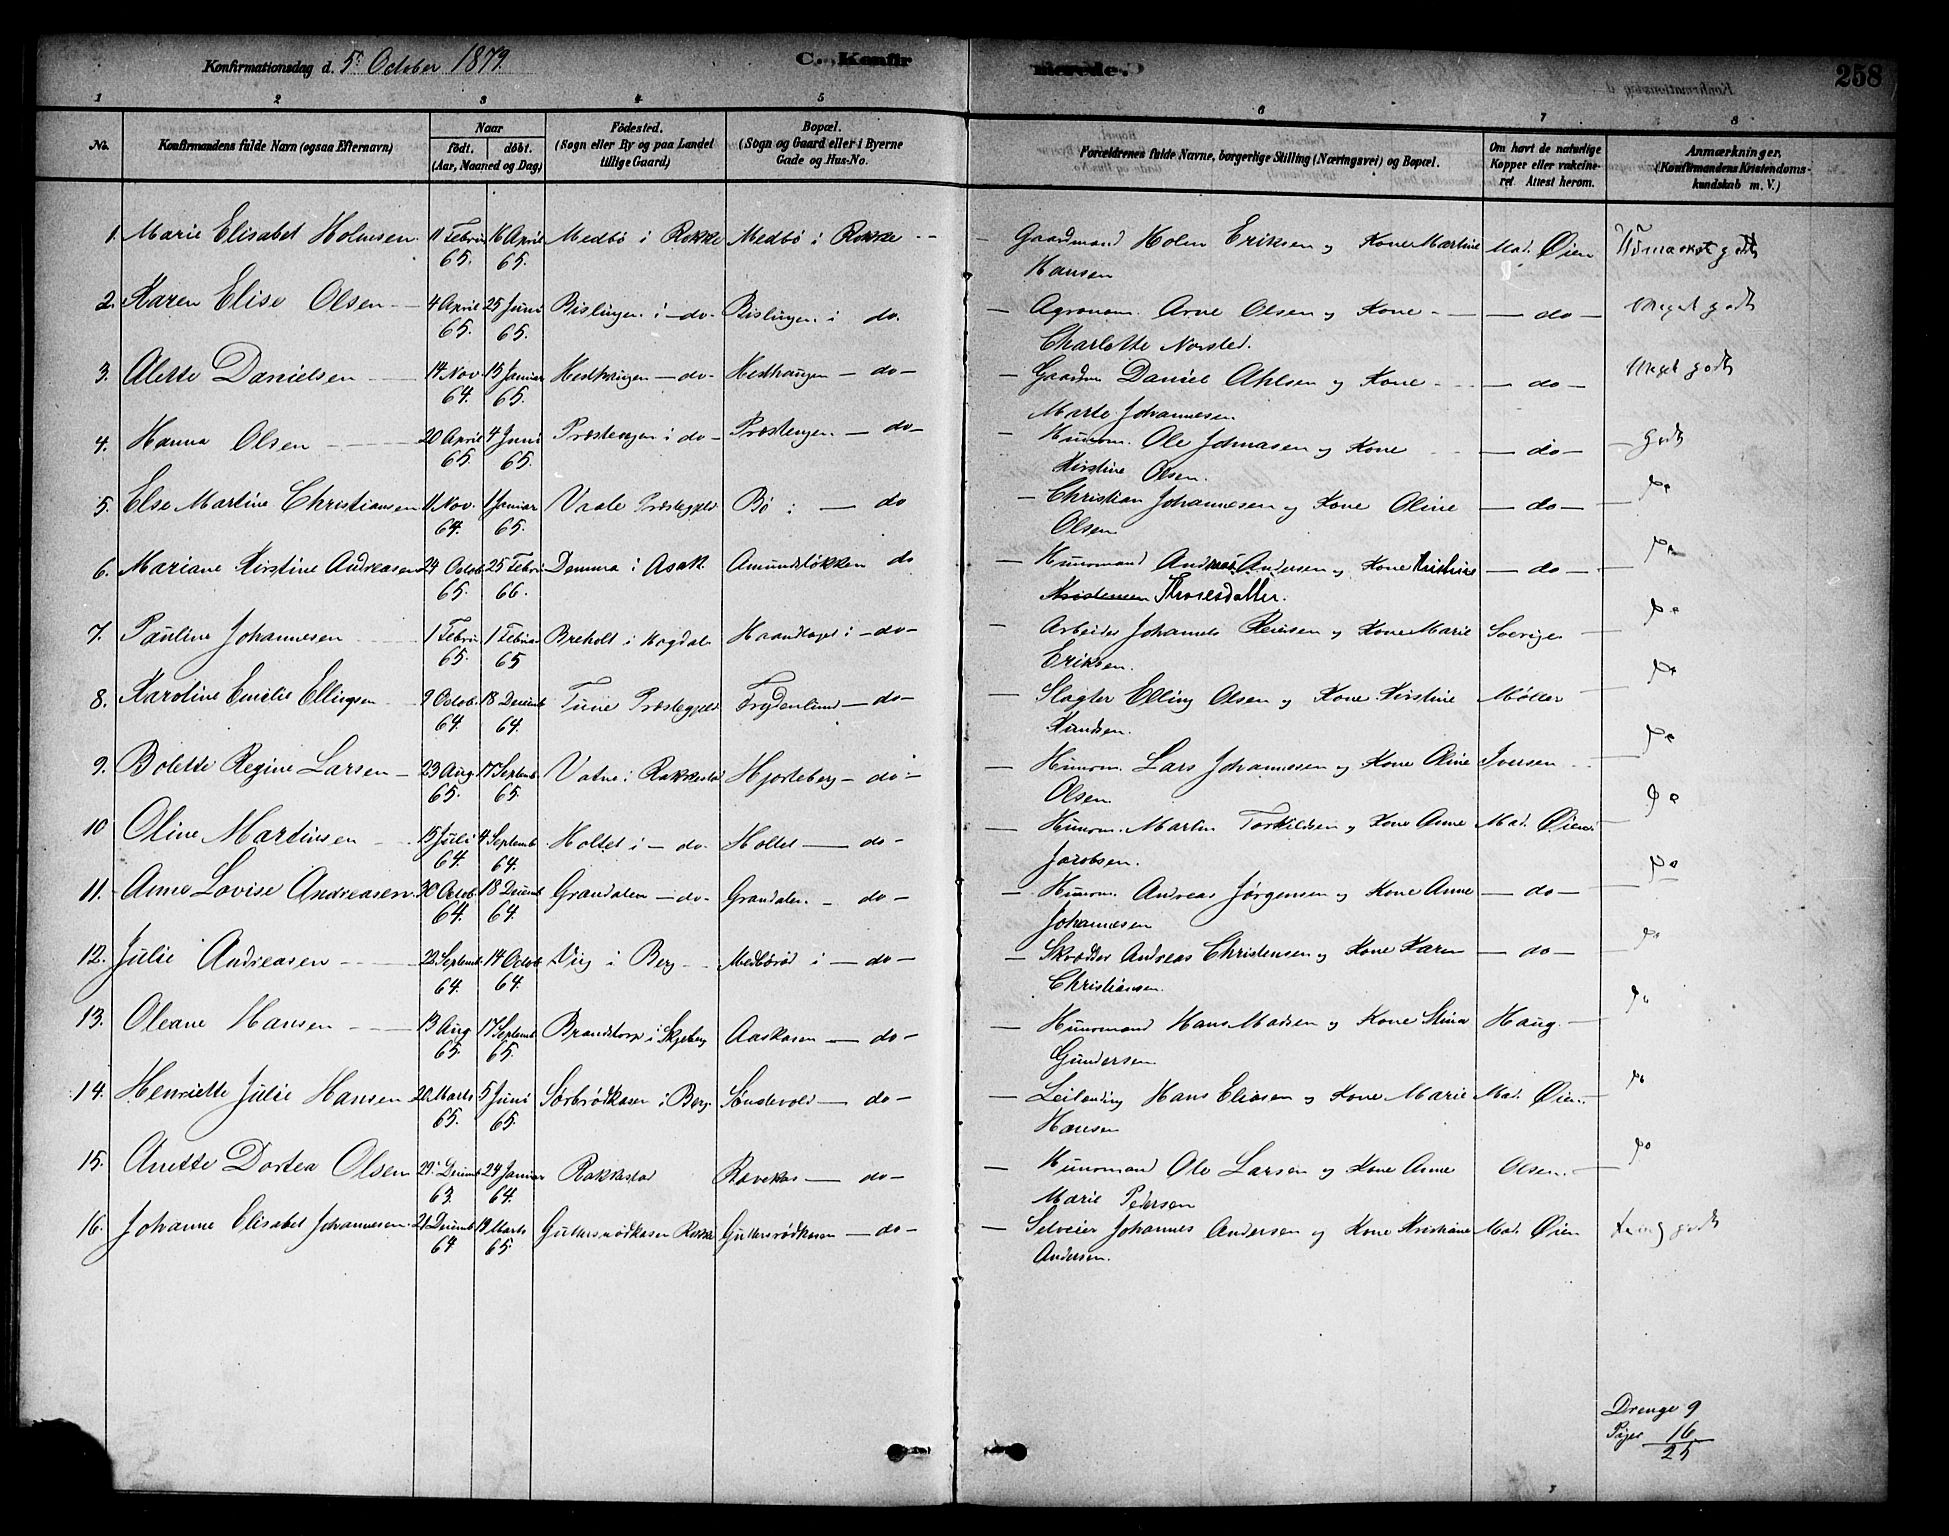 Konfirmationsdag d. 5. October 1879. C. Konfir merede. 258
1 2 3 4 5 6 7 8
No. Konfirmandens fulde Navn (ogsaa Efternavn) Naar født. døbt. (Aar, Maaned og Dag) Fødested. (Sogn eller By og paa Landet tillige Gaard) Bopæl. (Sogn og Gaard eller i Byerne Gade og Hus-No. Forældrenes fulde Navne, borgerlige Stilling (Næringsvei) og Bopæl. Om havt de naturlige Kopper eller vakcineret. Attest herom. Anmærkninger. (Konfirmandens Kristendomskundskab m. V.)
1. Marie Elisabet Holmsen 11 Febru 65. 16 April 65. Medbö i Rokke Medbö i Rokke - Gaardmand Holm Eriksen og Kone Martine Mad. Øien godt
Hansen
2. Karen Elise Olsen 4 April 65. 25 Juni 65. Bislingen i - do - Bislingen i do. - Agronom. Arne Olsen og Kone - do - Meget godt
Charlotte Norsted.
3. Alette Danielsen 14 Nov. 64. 15 Januar 65. Hedhaugen - do - Hedhaugen - do - - Gaardm Daniel Ahlsen og Kone - do - Meget godt
Marte Johannesen
4. Hanna Olsen 20 April 65. 4 Juni 65. Præstengen i do - Præstengen - do - - Husm. Ole Johnasen og Kone - do - Godt
Kirstine Olsen.
5. Else Martine Christiansen 11 Nov. 64. 1 Januar 65. Vaale Præstegjeld Bö i - do - Christian Johannesen og Kone Oline - do - Do
Olsen
6. Mariane Kirstine Andreasen 24 Octob 65. 25 Febru 66. Demma i Asak Amundsløkken do - Husmand Andreas Andersen og Kone Kristine - do - Do
Kristensen Thoresdatter.
7. Pauline Johannesen 1 Febru 65. 1 Februar 65 Breholt i Hogdal Haandlaget i - do - - Arbeider Johannes Reiersen og Kone Marie Sverige Do
Eriksen.
8. Karoline Emilie Ellingsen 9 Octob. 64. 18 Decemb 64. Tune Præstegjeld Frydenlund - do - - Slagter Elling Olsen og Kone Kirstine Møller Do
Knudsen.
9. Bolette Regine Larsen 23 Aug. 65. 17 Septemb 65. Vatne i Rakkestad Hjorteberg - do - - Husm. Lars Johannesen og Kone Oline Iversen Do
Olsen
10 Oline Martinsen 15 Juli 64. 4 Septemb 64. Holtet i - do. Holtet - do - - Husm. Martin Torkildsen og Kone Anne Mad. Øien Do
Jacobsen.
11. Anne Lovise Andreasen. 30 Octob 64. 18 Decemb 64. Grandalen - do - Grandalen - do - - Husm. Andreas Jørgensen og Kone Anne - do - Do
Johannesen
12. Julie Andreasen 22 Septemb 64. 14 Octob 64. Viig i Berg Medbørød i - do - - Skrædder Andreas Christensen og Kone Karen - do - Do
Christiansen.
13. Oleane Hansen 13 Aug 65. 17 Septemb 65. Brandstorp i Skjeberg Aaskasen - do - - Husmand Hans Madsen og Kone Stina Haug. Do
Gundersen
14. Henriette Julie Hansen 20 Marts 65. 5 Juni 65. Sørbrödkasen i Berg Sondevold - do - - Leilending Hans Eliasen og Kone Marie Mad. Øien. Do
Hansen
15. Anette Dortea Olsen 29 Decemb 63. 24 Januar 64. Rakkestad Ravekas - do - - Husmand Ole Larsen og Kone Anne Olsen. Do
Marie Pedersen
16. Johanne Elisabet Johannesen. 21 Decemb 64 19 Marts 65. Guttersrödkasen Rokke Guttersrödkasen - do - - Selveier Johannes Andersen og Kone Kristiane Mad. Øien godt
Andersen.
Drenge 9
Piger 16
25